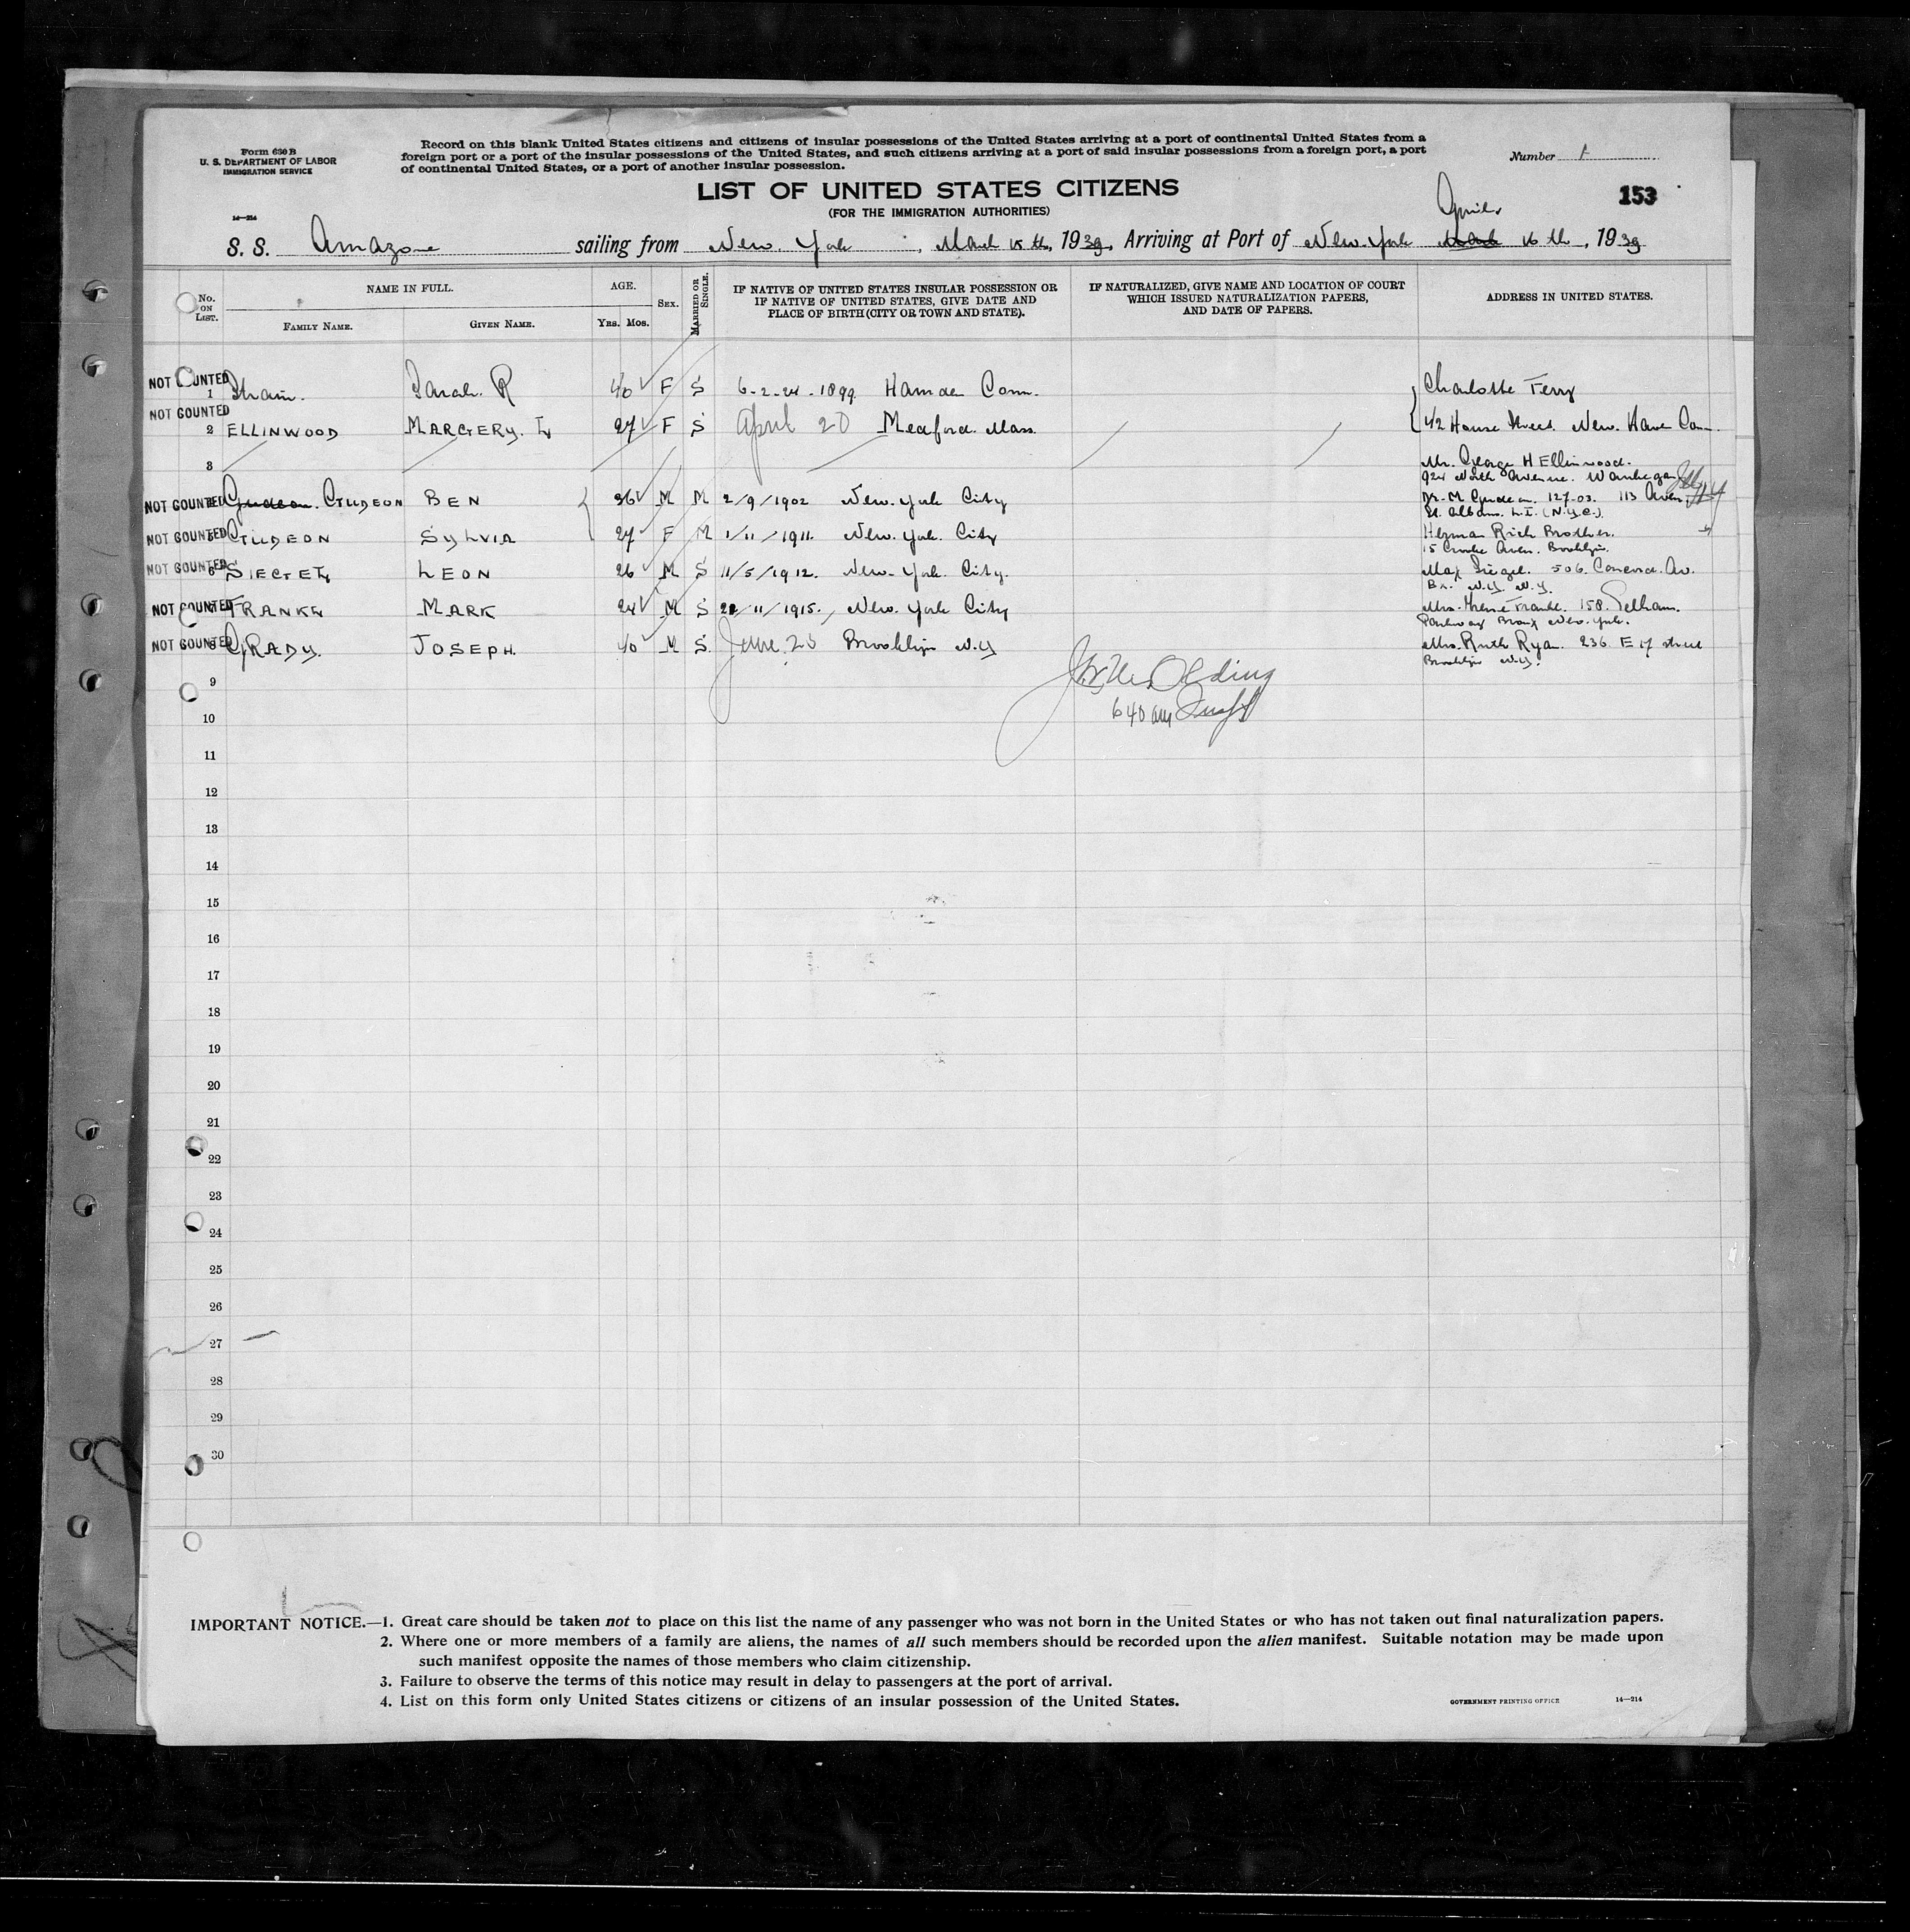 Form 630 B
U. S. DEPARTMENT OF LABOR
IMMIGRATION SERVICE
14—214
Record on this blank United States citizens and citizens of insular possessions of the United States arriving at a port of continental United States from a
foreign port or a port of the insular possessions of the United States, and such citizens arriving at a port of said insular possessions from a foreign port, a port
of continental United States, or a port of another insular possession.
Number 1
LIST OF UNITED STATES CITIZENS
(FOR THE IMMIGRATION AUTHORITIES)
153
April
S. S. Amazone sailing from New. York, March 15 th, 1939, Arriving at Port of New York March 16 th, 1939
No. ON LIST.
NAME IN FULL.
FAMILY NAME.
GIVEN NAME.
AGE.
YRS. MOS.
SEX.
MARRIED OR SINGLE.
IF NATIVE OF UNITED STATES INSULAR POSSESSION OR
IF NATIVE OF UNITED STATES, GIVE DATE AND
PLACE OF BIRTH (CITY OR TOWN AND STATE).
IF NATURALIZED, GIVE NAME AND LOCATION OF COURT
WHICH ISSUED NATURALIZATION PAPERS,
AND DATE OF PAPERS.
ADDRESS IN UNITED STATES.
NOT COUNTED 1 Sarah. R 40 F S 6-2-24-1899 Hamden Conn. Charlotte Terry
NOT COUNTED 2 ELLINWOOD MARGERY. L 27 F S April 20 Medford. Mass. 42 House Street. New. Haven Conn.
3 Mr. George H Ellinwood.
924 North Avenue. Waukegan
NOT COUNTED Gudeon. GUDEON BEN 36 M M 2/9/1902 New. York City Mr. M Gudeon. 127-03. 113 Aven.
St. Albans. L.I. (N.Y.C.)
NOT COUNTED GUDEON SYLVIA 27 F M 1/11/1911. New. York. City Herman Rich Brother.
15 Crooke Aven. Brooklyn.
NOT COUNTED 6 SIEGEL LEON 26 M S 11/5/1912. New. York. City. Max Siegel. 506. Concord. Av.
Bx. N.Y. N.Y.
NOT COUNTED FRANKL MARK 24 M S 22/11/1915. New. York City Mrs. Frankl. 158. Pelham.
Parkway Bronx New. York.
NOT COUNTED 8 GRADY. JOSEPH. 40 M S. June 25 Brooklyn N.Y Mrs. Ruth Ryan. 236. E 17 street
Brooklyn N.Y.
9
640 am Insp
10
11
12
13
14
15
16
17
18
19
20
21
22
23
24
25
26
27
28
29
30
IMPORTANT NOTICE.—1. Great care should be taken not to place on this list the name of any passenger who was not born in the United States or who has not taken out final naturalization papers.
2. Where one or more members of a family are aliens, the names of all such members should be recorded upon the alien manifest. Suitable notation may be made upon
such manifest opposite the names of those members who claim citizenship.
3. Failure to observe the terms of this notice may result in delay to passengers at the port of arrival.
4. List on this form only United States citizens or citizens of an insular possession of the United States.
GOVERNMENT PRINTING OFFICE 14—214